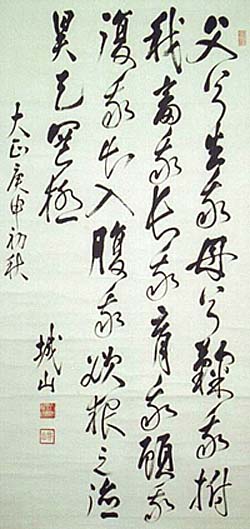 父兮生我母兮鞠我拊
我畜我長我育我顧我
復我出入腹我欲報之德
昊天罔極
大正庚申初秋
城山